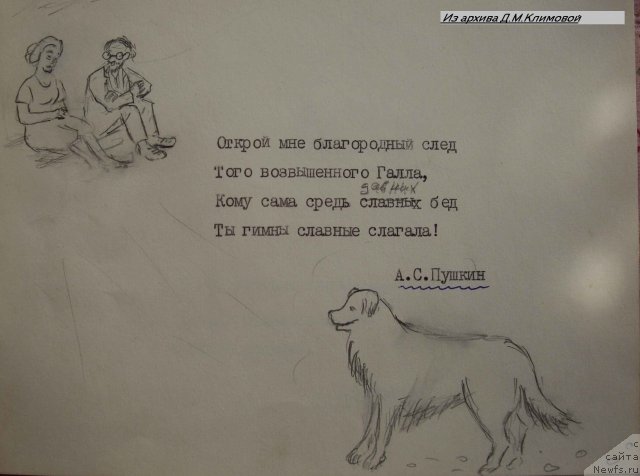 Из архива Д.М.Климовой
Открой мне благородный след
Того возвышенного Галла,
давних
Кому сама средь славных бед
Ты гимны славные слагала!
А.С.Пушкин
с
сайта
Newfs.ru